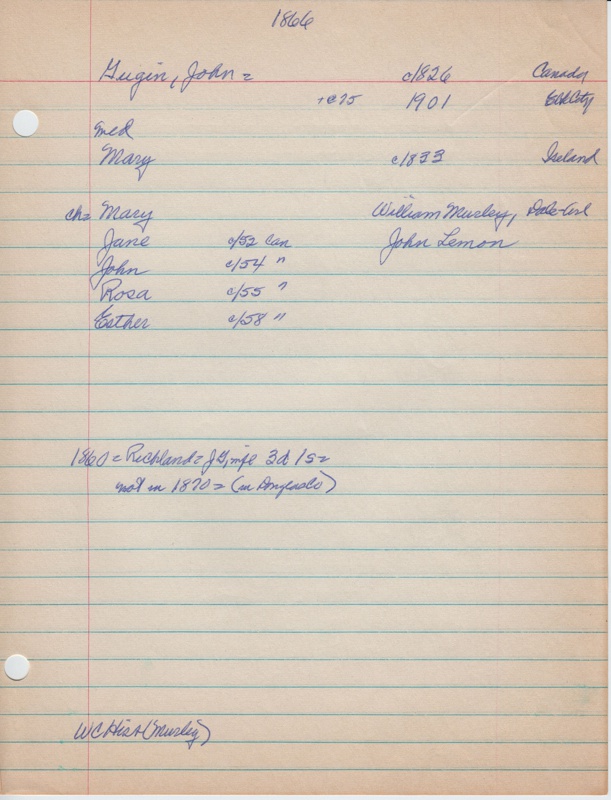 1866
Gugin, John = c1826 Canada
+c75 1901 Elk City
med
Mary c1833 Ireland
ch= Mary William Murley, Dale-Cisl
Jane c/52 Can John Lemon
John c/54 "
Rosa c/55 "
Esther c/58 "
1860 = Richland = J G, wife 3d 1s =
not in 1870 = (in Douglas Co)
WC Hist (Murley)